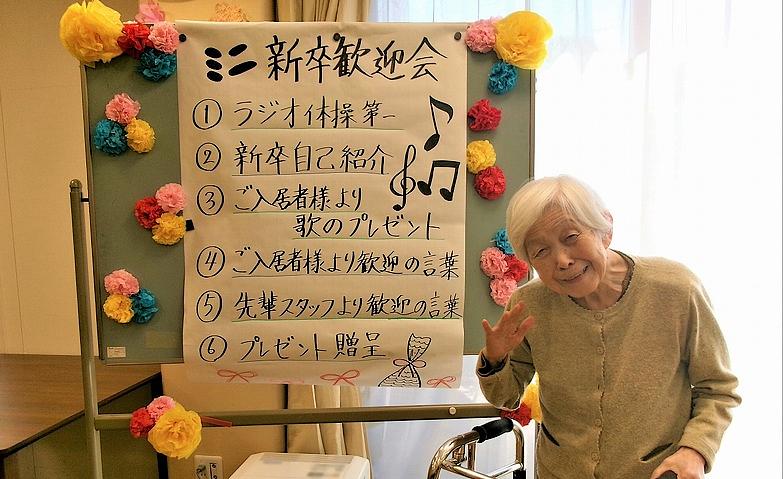 ミニ 新卒歓迎会
① ラジオ体操第一
② 新卒自己紹介
③ ご入居者様より
歌のプレゼント
④ ご入居者様より歓迎の言葉
⑤ 先輩スタッフより歓迎の言葉
⑥ プレゼント贈呈